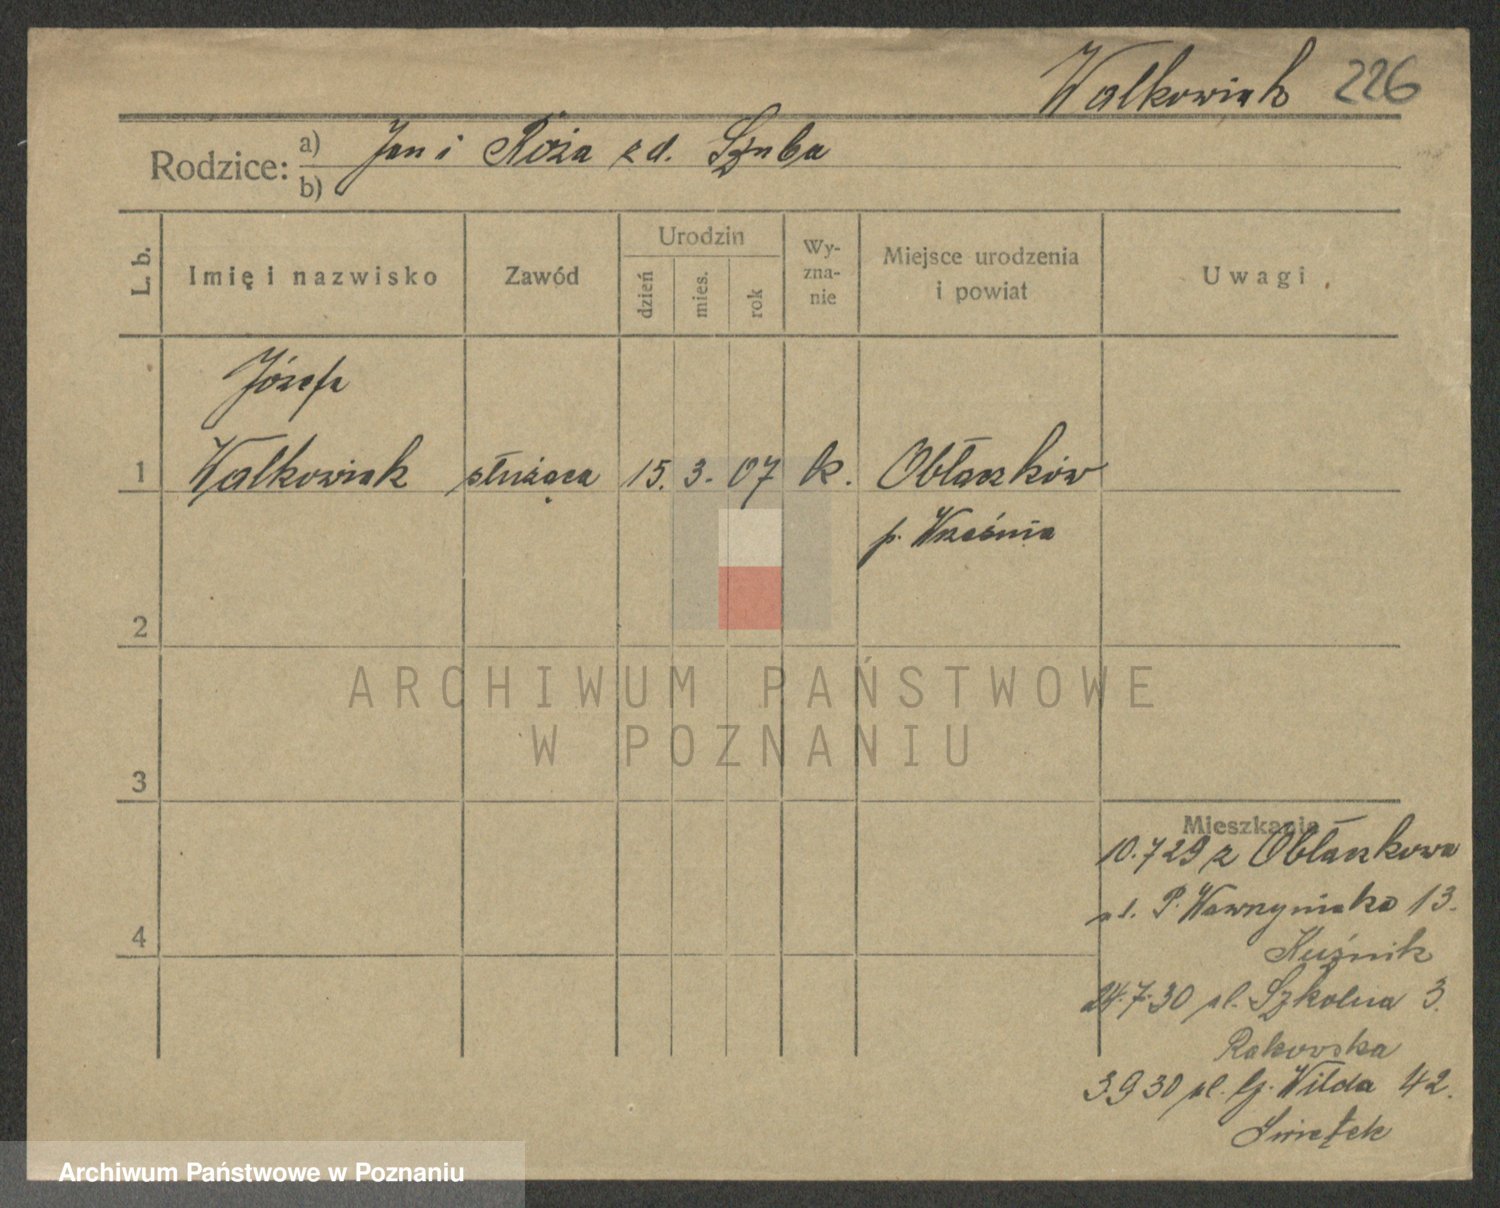 Walkowiak 226
Rodzice: a) Jan i Róża z d. Szuba
b)
L. b.
Imię i nazwisko
Zawód
Urodzin
dzień
mies.
rok
Wy-
zna-
nie
Miejsce urodzenia
i powiat
Uwagi
Józefa
1 Walkowiak służąca 15. 3. 07 k. Obłaszków
p. Września
2
3
4
Mieszkania
10.7 29 z Obłaszkowa
ul. P. Wawrzyniaka 13.
Kuźnik
24.7.30 ul. Szkolna 3.
Rakowska
3.9 30 ul. G. Wilda 42.
Świętek
ARCHIWUM PAŃSTWOWE
W POZNANIU
Archiwum Państwowe w Poznaniu